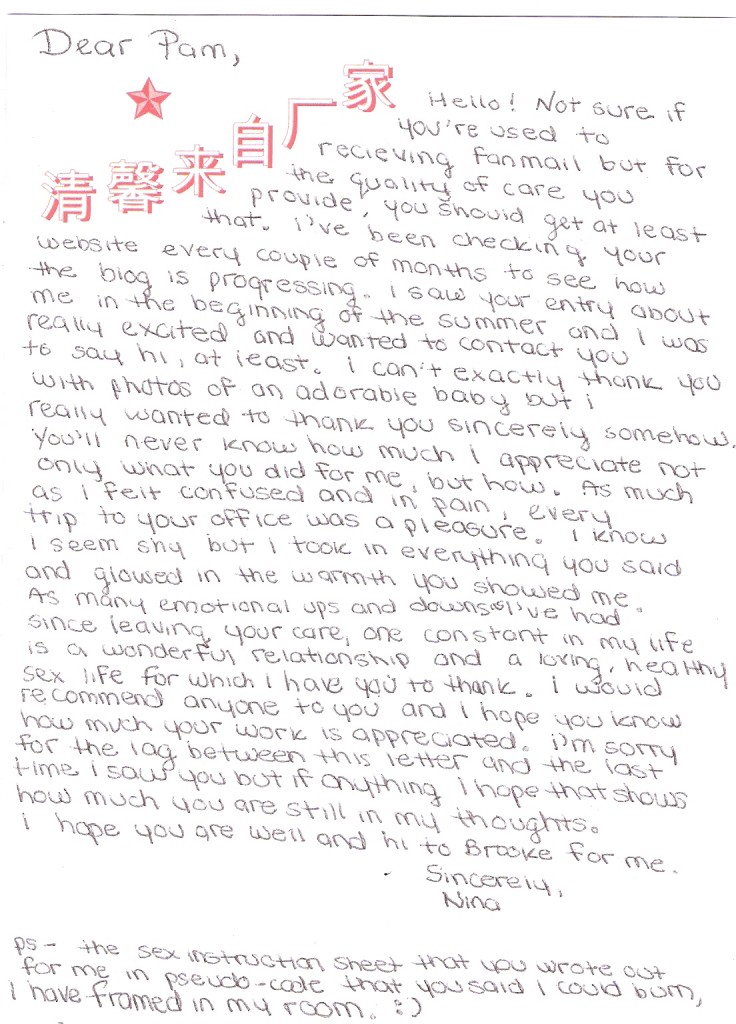 Dear Pam,
清馨来自厂家
Hello! Not sure if
you're used to
recieving fanmail but for
the quality of care you
provide, you should get at least
that. i've been checking your
website every couple of months to see how
the blog is progressing. i saw your entry about
me in the beginning of the summer and I was
really excited and wanted to contact you
to say hi, at least. i can't exactly thank you
with photos of an adorable baby but i
really wanted to thank you sincerely somehow.
You'll never know how much i appreciate not
only what you did for me, but how. As much
as i felt confused and in pain, every
trip to your office was a pleasure. I know
I seem shy but i took in everything you said
and glowed in the warmth you showed me.
As many emotional ups and downs I've had
since leaving your care, one constant in my life
is a wonderful relationship and a loving, healthy
sex life for which I have you to thank. i would
recommend anyone to you and I hope you know
how much your work is appreciated. i'm sorry
for the lag between this letter and the last
time i saw you but if anything i hope that shows
how much you are still in my thoughts.
i hope you are well and hi to Brooke for me.
Sincerely,
Nina
ps- the sex instruction sheet that you wrote out
for me in pseudo-code that you said I could burn,
I have framed in my room. :)